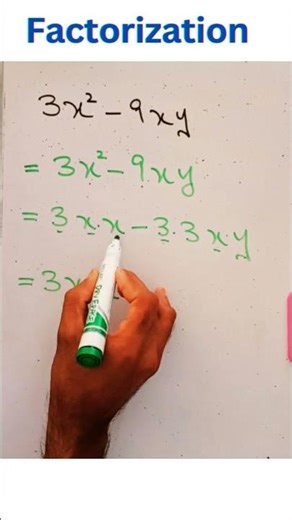 Factorization
3x² - 9xy
= 3x² - 9xy
= 3 x. x - 3. 3 x y
= 3x